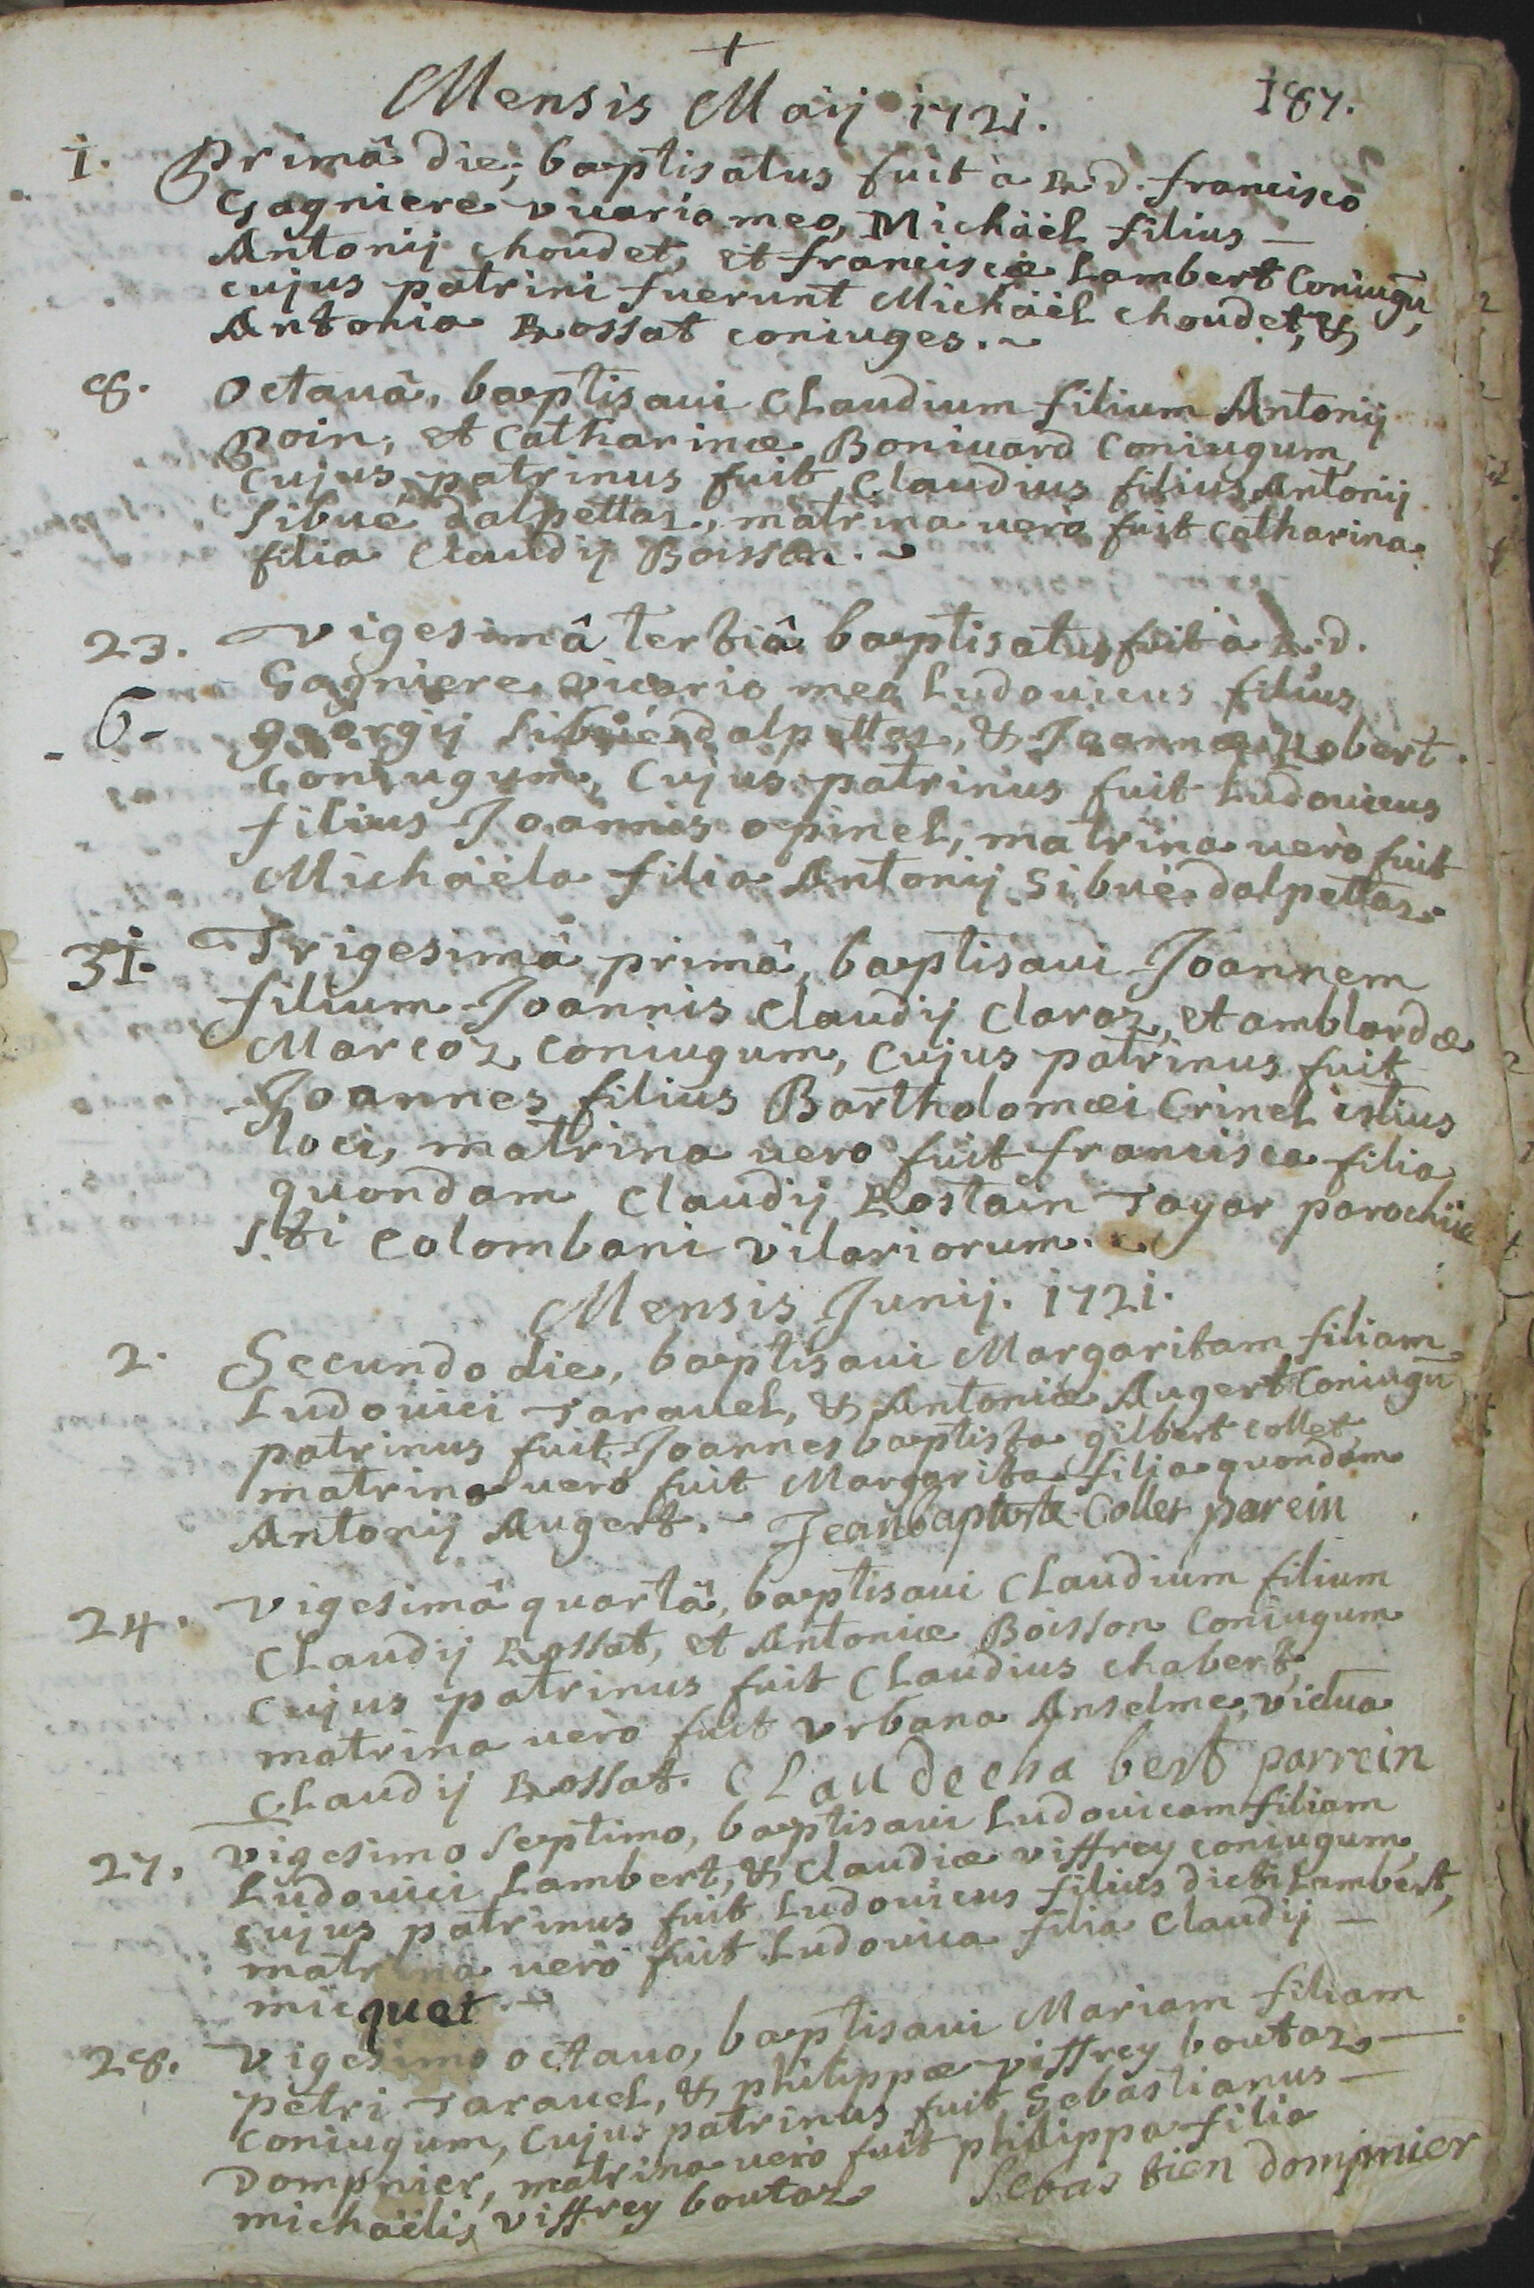 +
Mensis Maij 1721.
187.
1. Primâ die, baptisatus fuit à R d. francisco
Gagniere vicario meo, Michäel filius —
Antonij choudet, et franciscæ Lambert Coniugũ,
cujus patrini fuerunt Michäel choudet, &
Antonia Rossat coniuges. ~
8. Octauâ, baptisaui Claudium filium Antonij
Poin, et Catharinæ Boniuard Coniugum,
Cujus patrinus fuit Claudius filius Antonij
Sibué dalpettaz, matrina verò fuit Catharina
filia Claudij Boisson. ~
23. Vigesimâ tertiâ baptisatus fuit à R. d.
Gagniere vicario meo Ludouicus filius
- 6 - georgij Sibué dalpettaz, & Joannæ Robert.
Coniugum, Cujus patrinus fuit Ludouicus
filius Joannis opinel, matrina uerò fuit
Michäela filia Antonij Sibué dalpettaz.
31. Trigesimâ primâ, baptisaui Joannem
filium Joannis Claudij Claraz, et amblardæ
Marcoz coniugum, Cujus patrinus fuit
Joannes filius Bartholomæi Crinel istius
loci, matrina uero fuit francisca filia
quondam Claudij Rostain Tayar parochiæ
Sti Colombani Vilariorum. ~
Mensis Junij. 1721.
2. Secundo die, baptisaui Margaritam filiam
Ludouici Tarauel, & Antoniæ Augert Coniugũ
patrinus fuit Joannes baptista gilbert collet
matrina uerò fuit Margarita filia quondam
Antonij Augert. ~ Jean baptiste Collet parein
24. Vigesimâ quartâ, baptisaui Claudium filium
Claudij Rossat, et Antoniæ Boisson Coniugum
Cujus patrinus fuit Claudius chabert,
matrina uerò fuit Vrbana Anselme, vidua
Claudij Rossat. CLaudecha bert parrein
27. Vigesimo Septimo, baptisaui Ludouicam filiam
Ludouici Lambert, & Claudiæ viffrey coniugum,
cujus patrinus fuit Ludouicus filius dicti Lambert,
matrina uerò fuit Ludouica filia Claudij —
micquet. ~
28. Vigesimo octauo, baptisaui Mariam filiam
petri Tarauel, & philippæ viffrey boutaz —
coniugum, Cujus patrinus fuit Sebastianus —
Dompnier, matrina uerò fuit philippa filia
michäelis viffrey boutaz Sebas tien dompnier